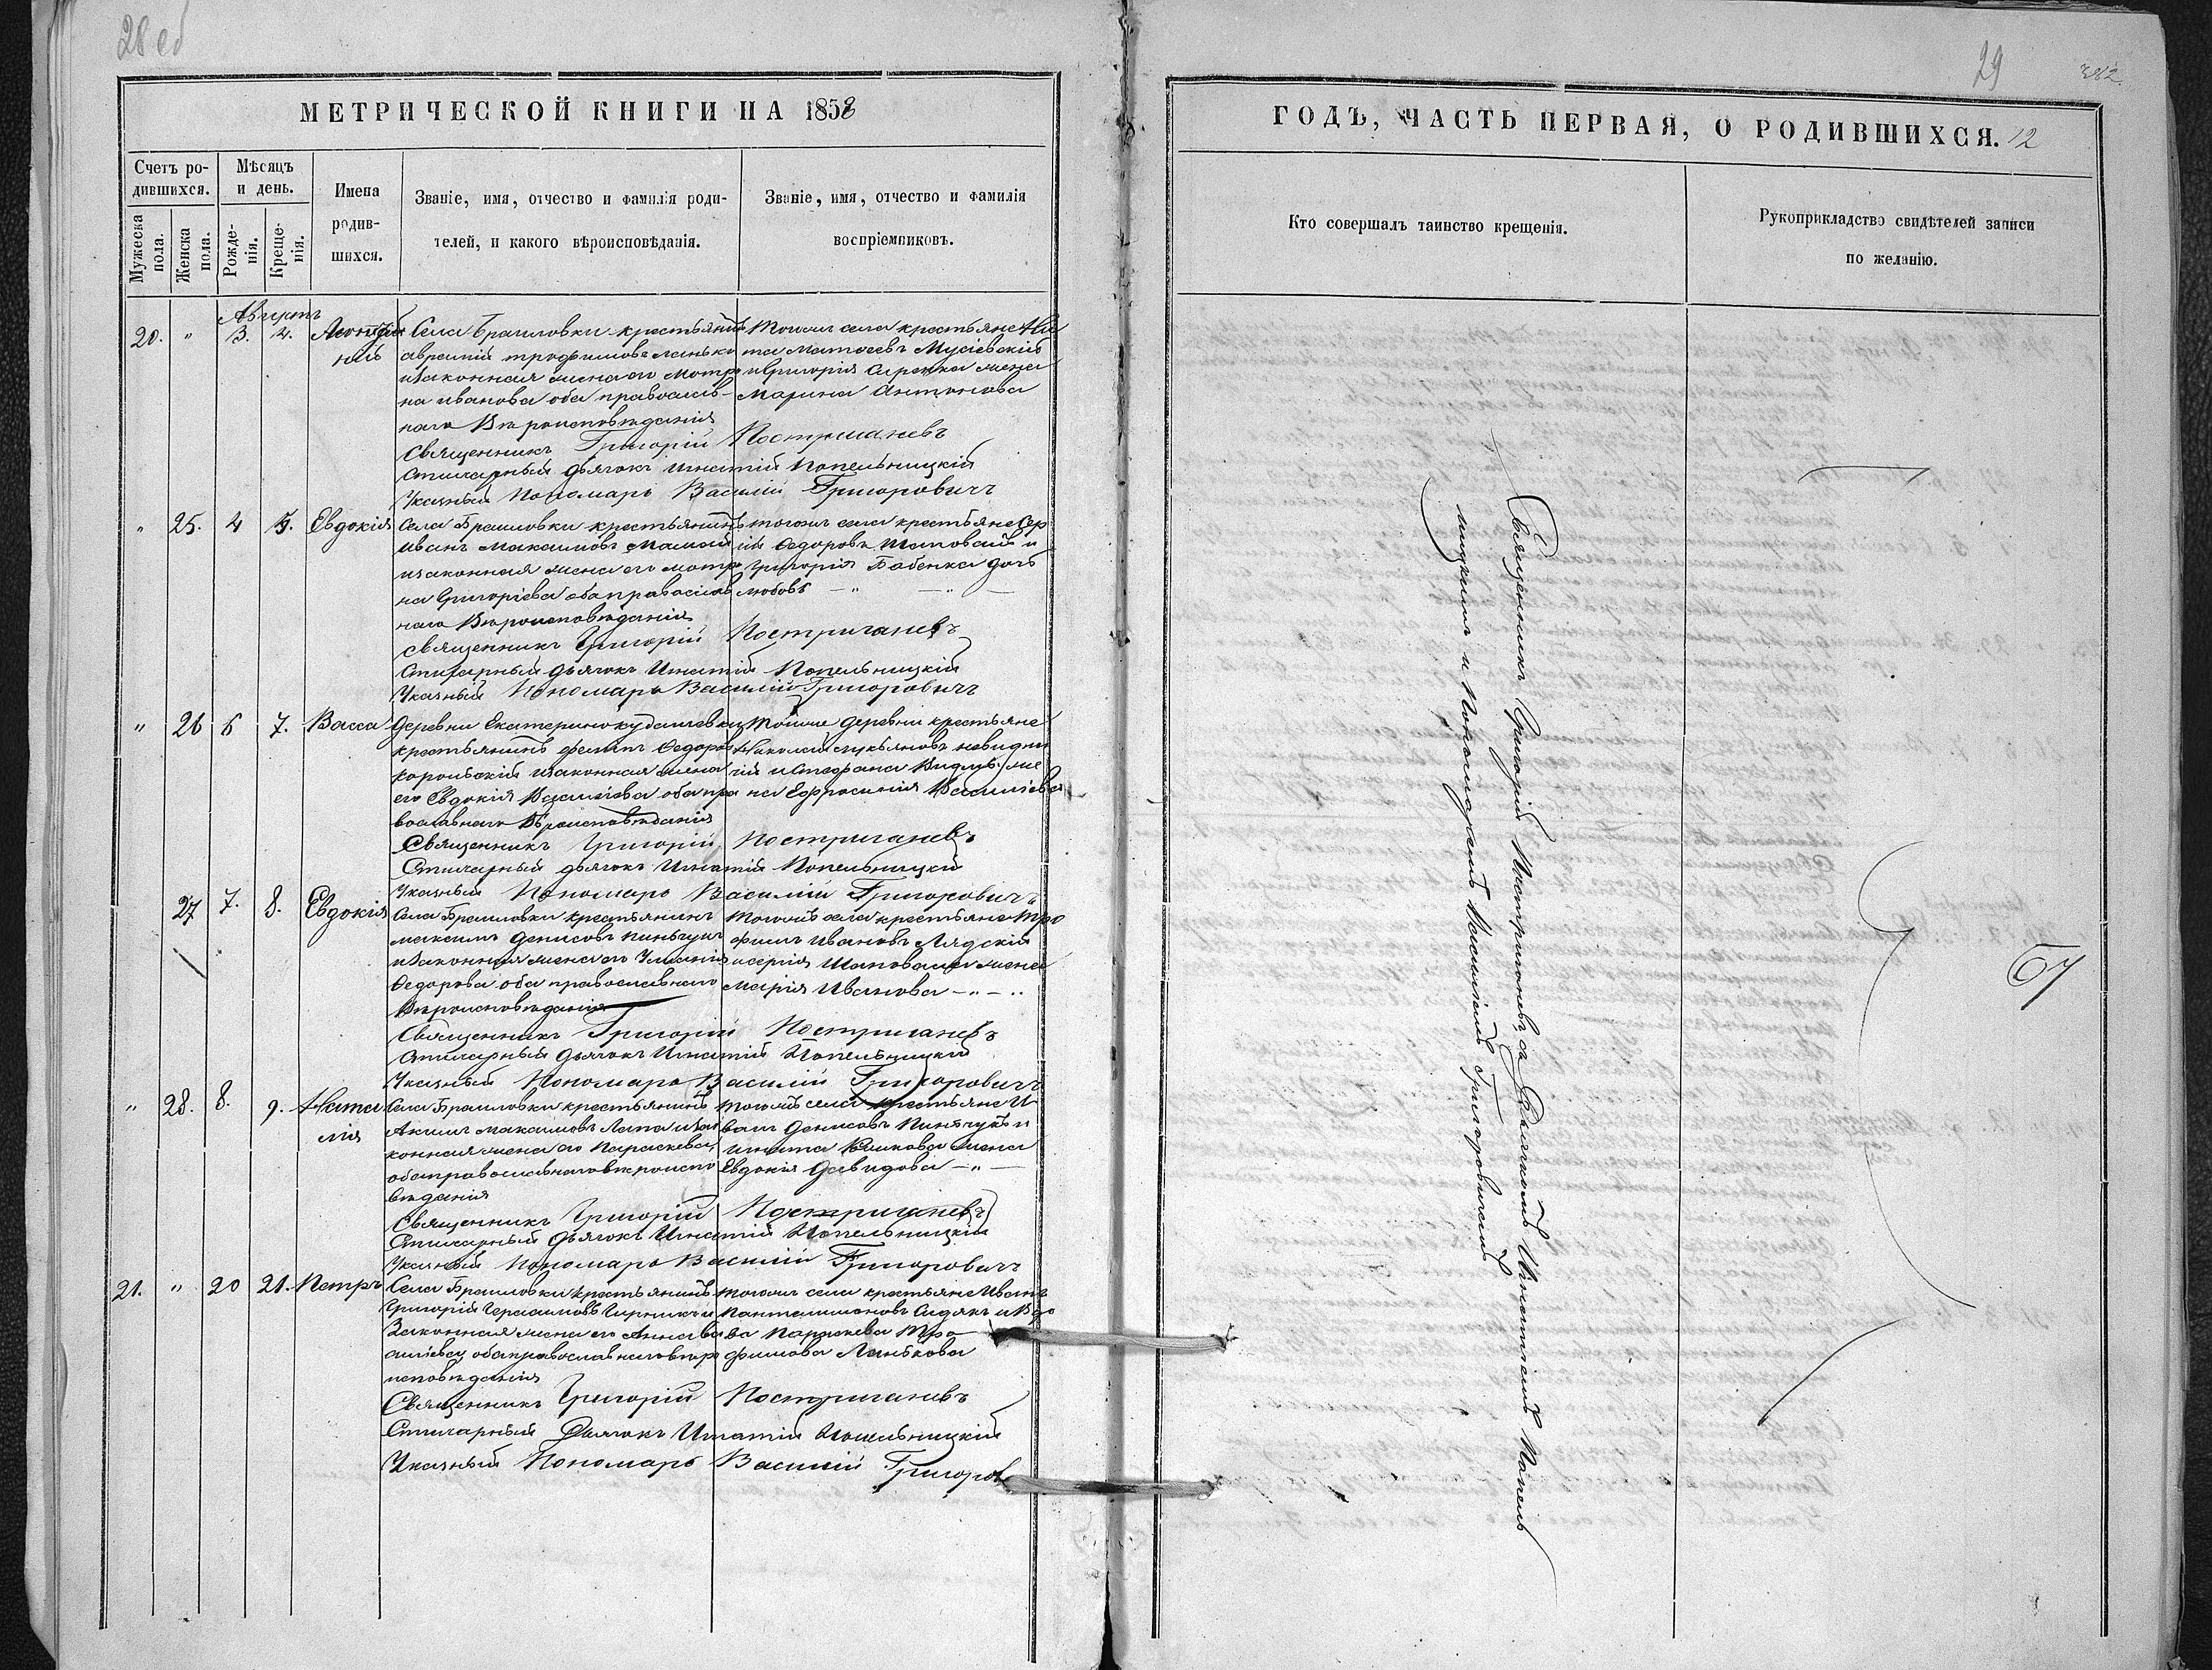 28 об
МЕТРИЧЕСКОЙ КНИГИ НА 1858
Счетъ ро-
дившихся.
Мѣсяцъ
и день.
Имена
родив-
шихся.
Званіе, имя, отчество и фамилія роди-
телей, и какого вѣроисповѣданія.
Званіе, имя, отчество и фамилія
воспріемниковъ.
Мужеска
пола.
Женска
пола.
Рожде-
нія.
Креще-
нія.
Августъ
20. " 3. 4.
Села Браиловки крестьянинъ
Аврамій Трофимовъ Ланько
и законная жена его Мотро
на Иванова оба православ-
наго Вѣроисповѣданія
Тогожъ села крестьяне Ники
та Матѳеевъ Мусіевскій
и Григорія жена
Марина Антонова
Священникъ Григорій Постригачевъ
Стихарный дьячокъ Игнатій Попельницкій
Указный Пономарь Василій Григоровичъ
" 25. 4 5. Евдокія
Села Браиловки крестьянинъ
Иванъ Максимовъ
и законная жена его Мотро
на Григорієва оба православ
наго Вѣроисповѣданія
тогожъ села крестьяне Сер
гій Ѳедоровъ и
Григорія Бабенка дочь
Любовь — " — " —
Священникъ Григорій Постригачевъ
Стихарный дьячокъ Игнатій Попельницкій
Указный Пономарь Василій Григоровичъ
" 26 6 7. Васса
Деревни
крестьянинъ Филипъ Ѳедоровъ
и законная жена
его Евдокія Василіева оба пра
вославнаго Вѣроисповѣданія
Тойже деревни крестьяне
Николай Лукьяновъ
и Стефана же
на Ефросинія Василіева
Священникъ Григорій Постригачевъ
Стихарный дьячокъ Игнатій Попельницкій
Указный Пономарь Василій Григоровичъ
27 7. 8. Евдокія
Села Браиловки крестьянинъ
Максимъ Денисовъ Пиньчукъ
и законная жена его Уліанія
Ѳедорова оба православнаго
Вѣроисповѣданія
Тогожъ села крестьяне Тро
фимъ Ивановъ Лядскій
и Сергія Шаповала жена
Марія Иванова — " — "
Священникъ Григорій Постригачевъ
Стихарный дьячокъ Игнатій Попельницкій
Указный Пономарь Василій Григоровичъ
" 28. 8. 9. Ната
лія
Села Браиловки крестьянинъ
Акимъ Максимовъ Лапа и зак
конная жена его Параскева
оба православнаго вѣроиспо
вѣданія
Тогожъ села крестьяне И
ванъ Денисовъ Пинчукъ и
жена
Евдокія Давидова — " —
Священникъ Григорій Постригачевъ
Стихарный дьячокъ Игнатій Попельницкій
Указный Пономарь Василій Григоровичъ
21. " 20 21. Петръ
Села Браиловки крестьянинъ
Григорій Герасимовъ и
Законная жена его Анна Ва
силіева оба православнаго вѣро
исповѣданія
тогожъ села крестьяне Иванъ
Пантелимоновъ Сидякъ и Вдо
ва Параскева Тро
фимова Ланькова
Священникъ Григорій Постригачевъ
Стихарный Дьячокъ Игнатій Попельницкій
Указный Пономарь Василій Григоров
29
382
ГОДЪ, ЧАСТЬ ПЕРВАЯ, О РОДИВШИХСЯ. 12
Кто совершалъ таинство крещенія.
Рукоприкладство свидѣтелей записи
по желанію.
Священникъ Григорій Постригачевъ съ Дьячкомъ Игнатіемъ Попель
ницкимъ и Пономаремъ Василіемъ Григоровичемъ